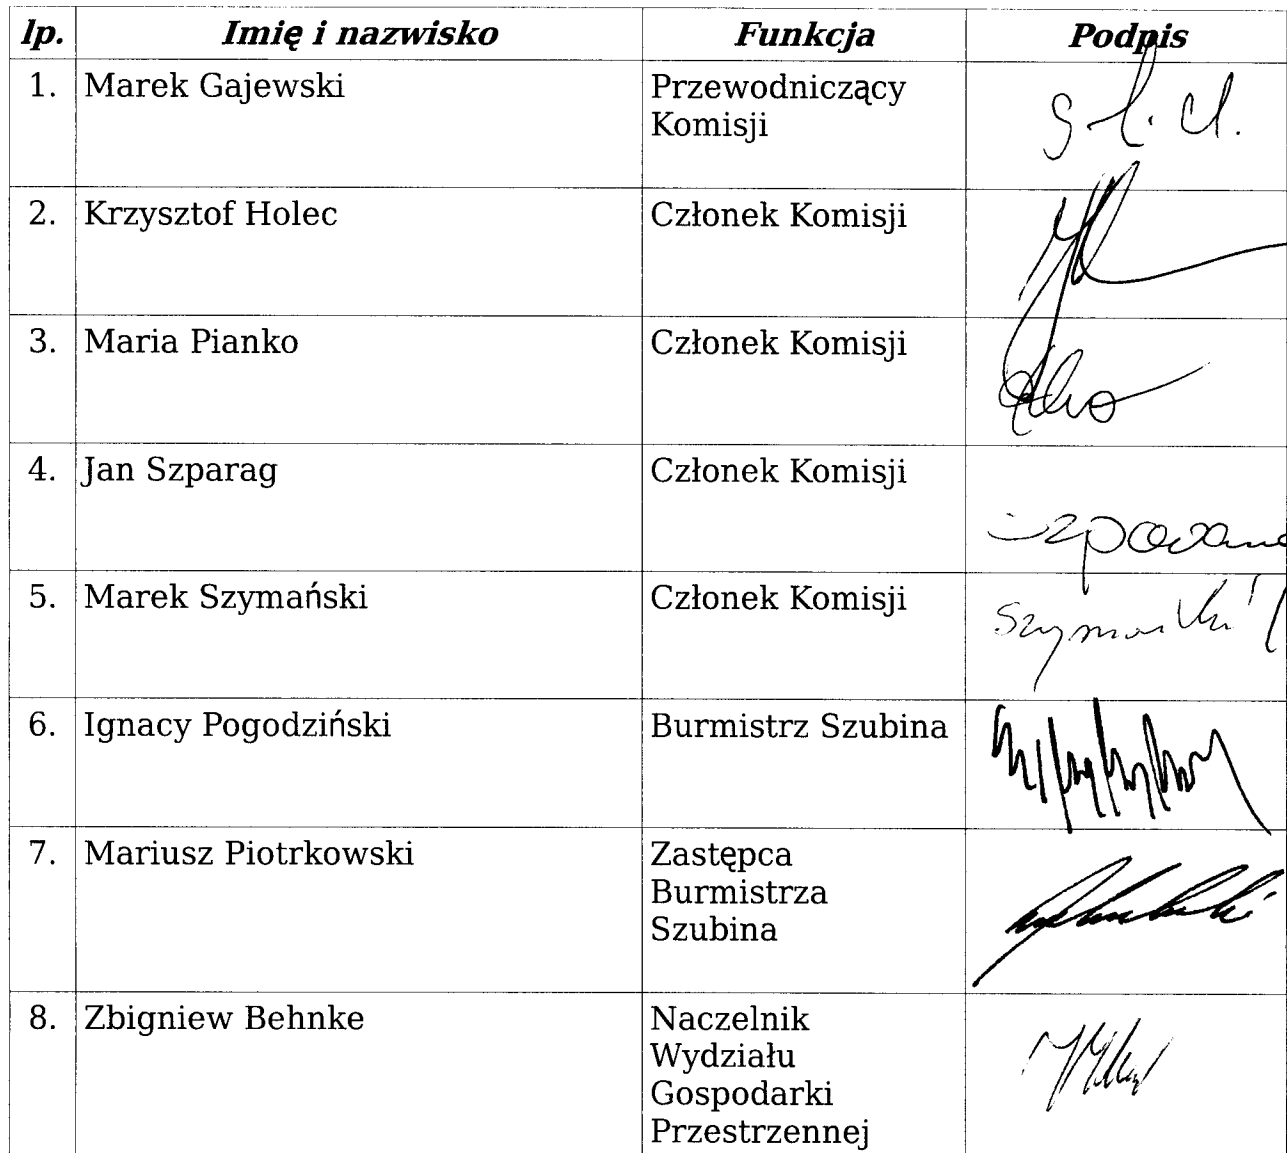 lp. Imię i nazwisko Funkcja Podpis
1. Marek Gajewski Przewodniczący
Komisji
2. Krzysztof Holec Członek Komisji
3. Maria Pianko Członek Komisji
4. Jan Szparag Członek Komisji
5. Marek Szymański Członek Komisji
Szymański
6. Ignacy Pogodziński Burmistrz Szubina
7. Mariusz Piotrkowski Zastępca
Burmistrza
Szubina
8. Zbigniew Behnke Naczelnik
Wydziału
Gospodarki
Przestrzennej